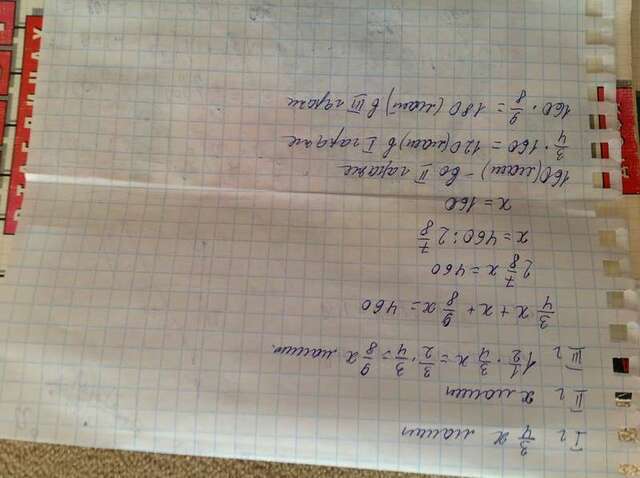 I г 3/4 х машин
II г х машин
III г 1 1/2 · 3/4 х = 3/2 · 3/4 = 9/8 х машин.
3/4 х + х + 9/8 х = 460
2 7/8 х = 460
х = 460 : 2 7/8
х = 160
160 (маш) - во II гараже
3/4 · 160 = 120 (маш) в I гараже
160 · 9/8 = 180 (маш) в III гараже